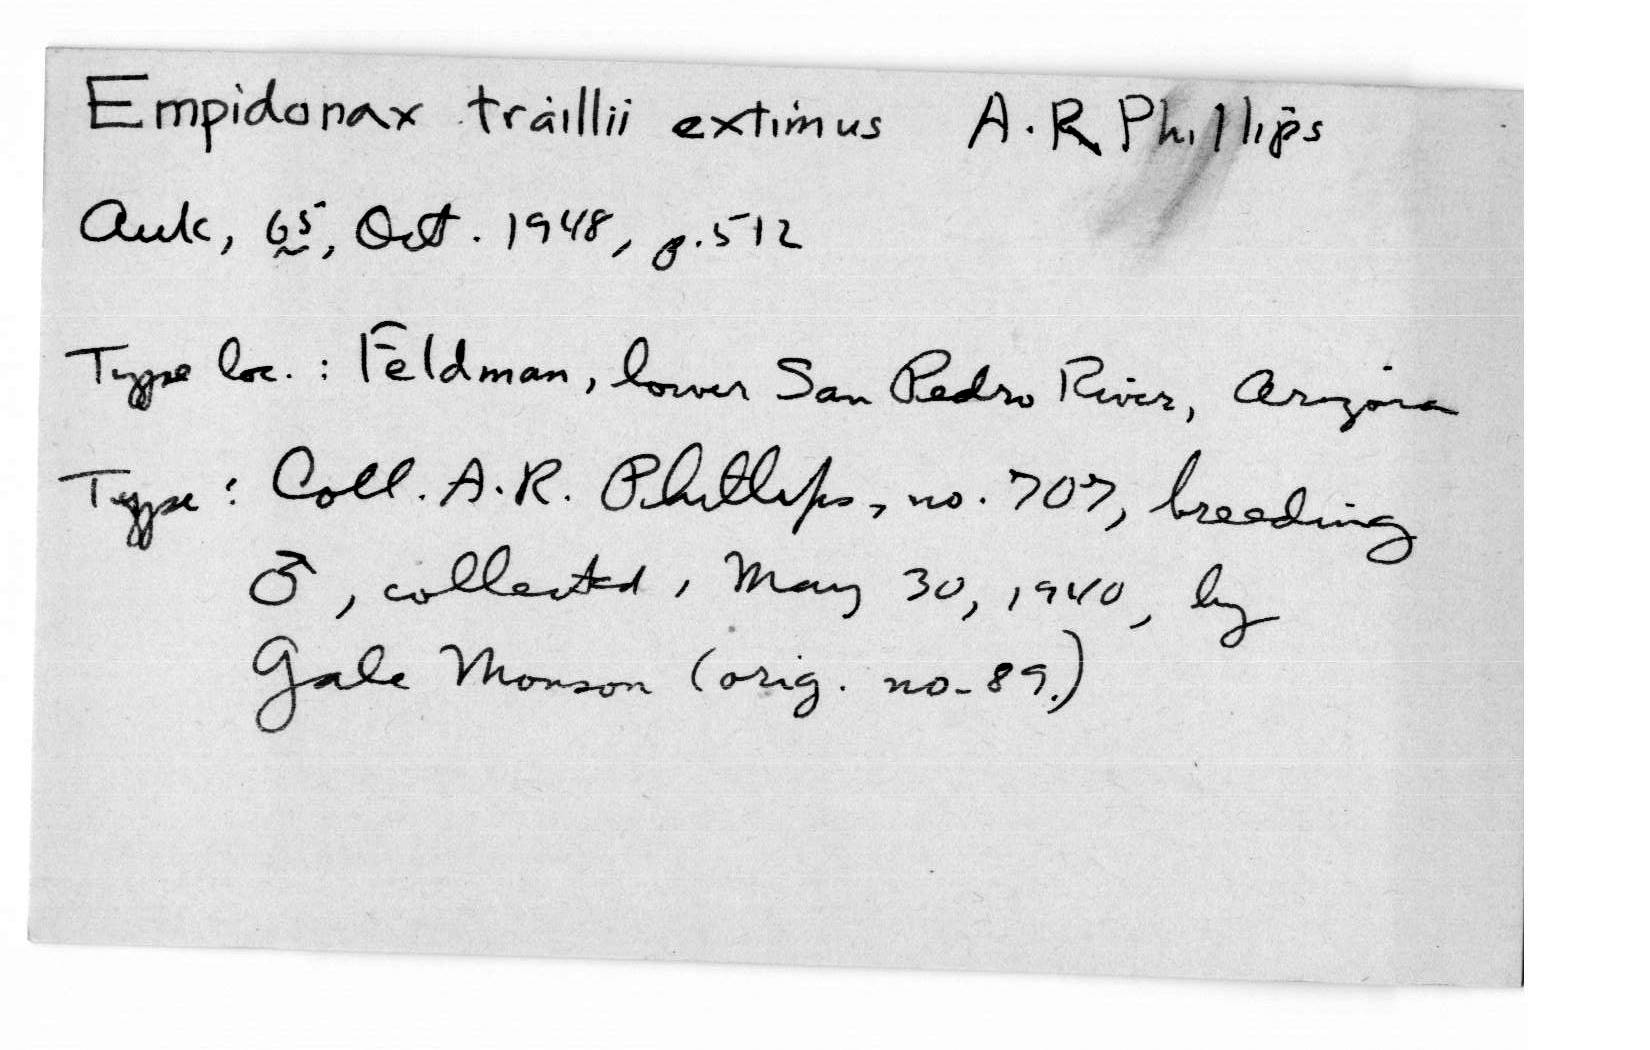 Empidonax traillii extimus A.R Phillips
Auk, 65, Oct. 1948, p.512
Type loc. : Feldman, lower San Pedro River, Arizona
Type : Coll. A.R. Phillips, no. 707, breeding
♂, collected, May 30, 1940, by
Gale Monson (orig. no. 89.)